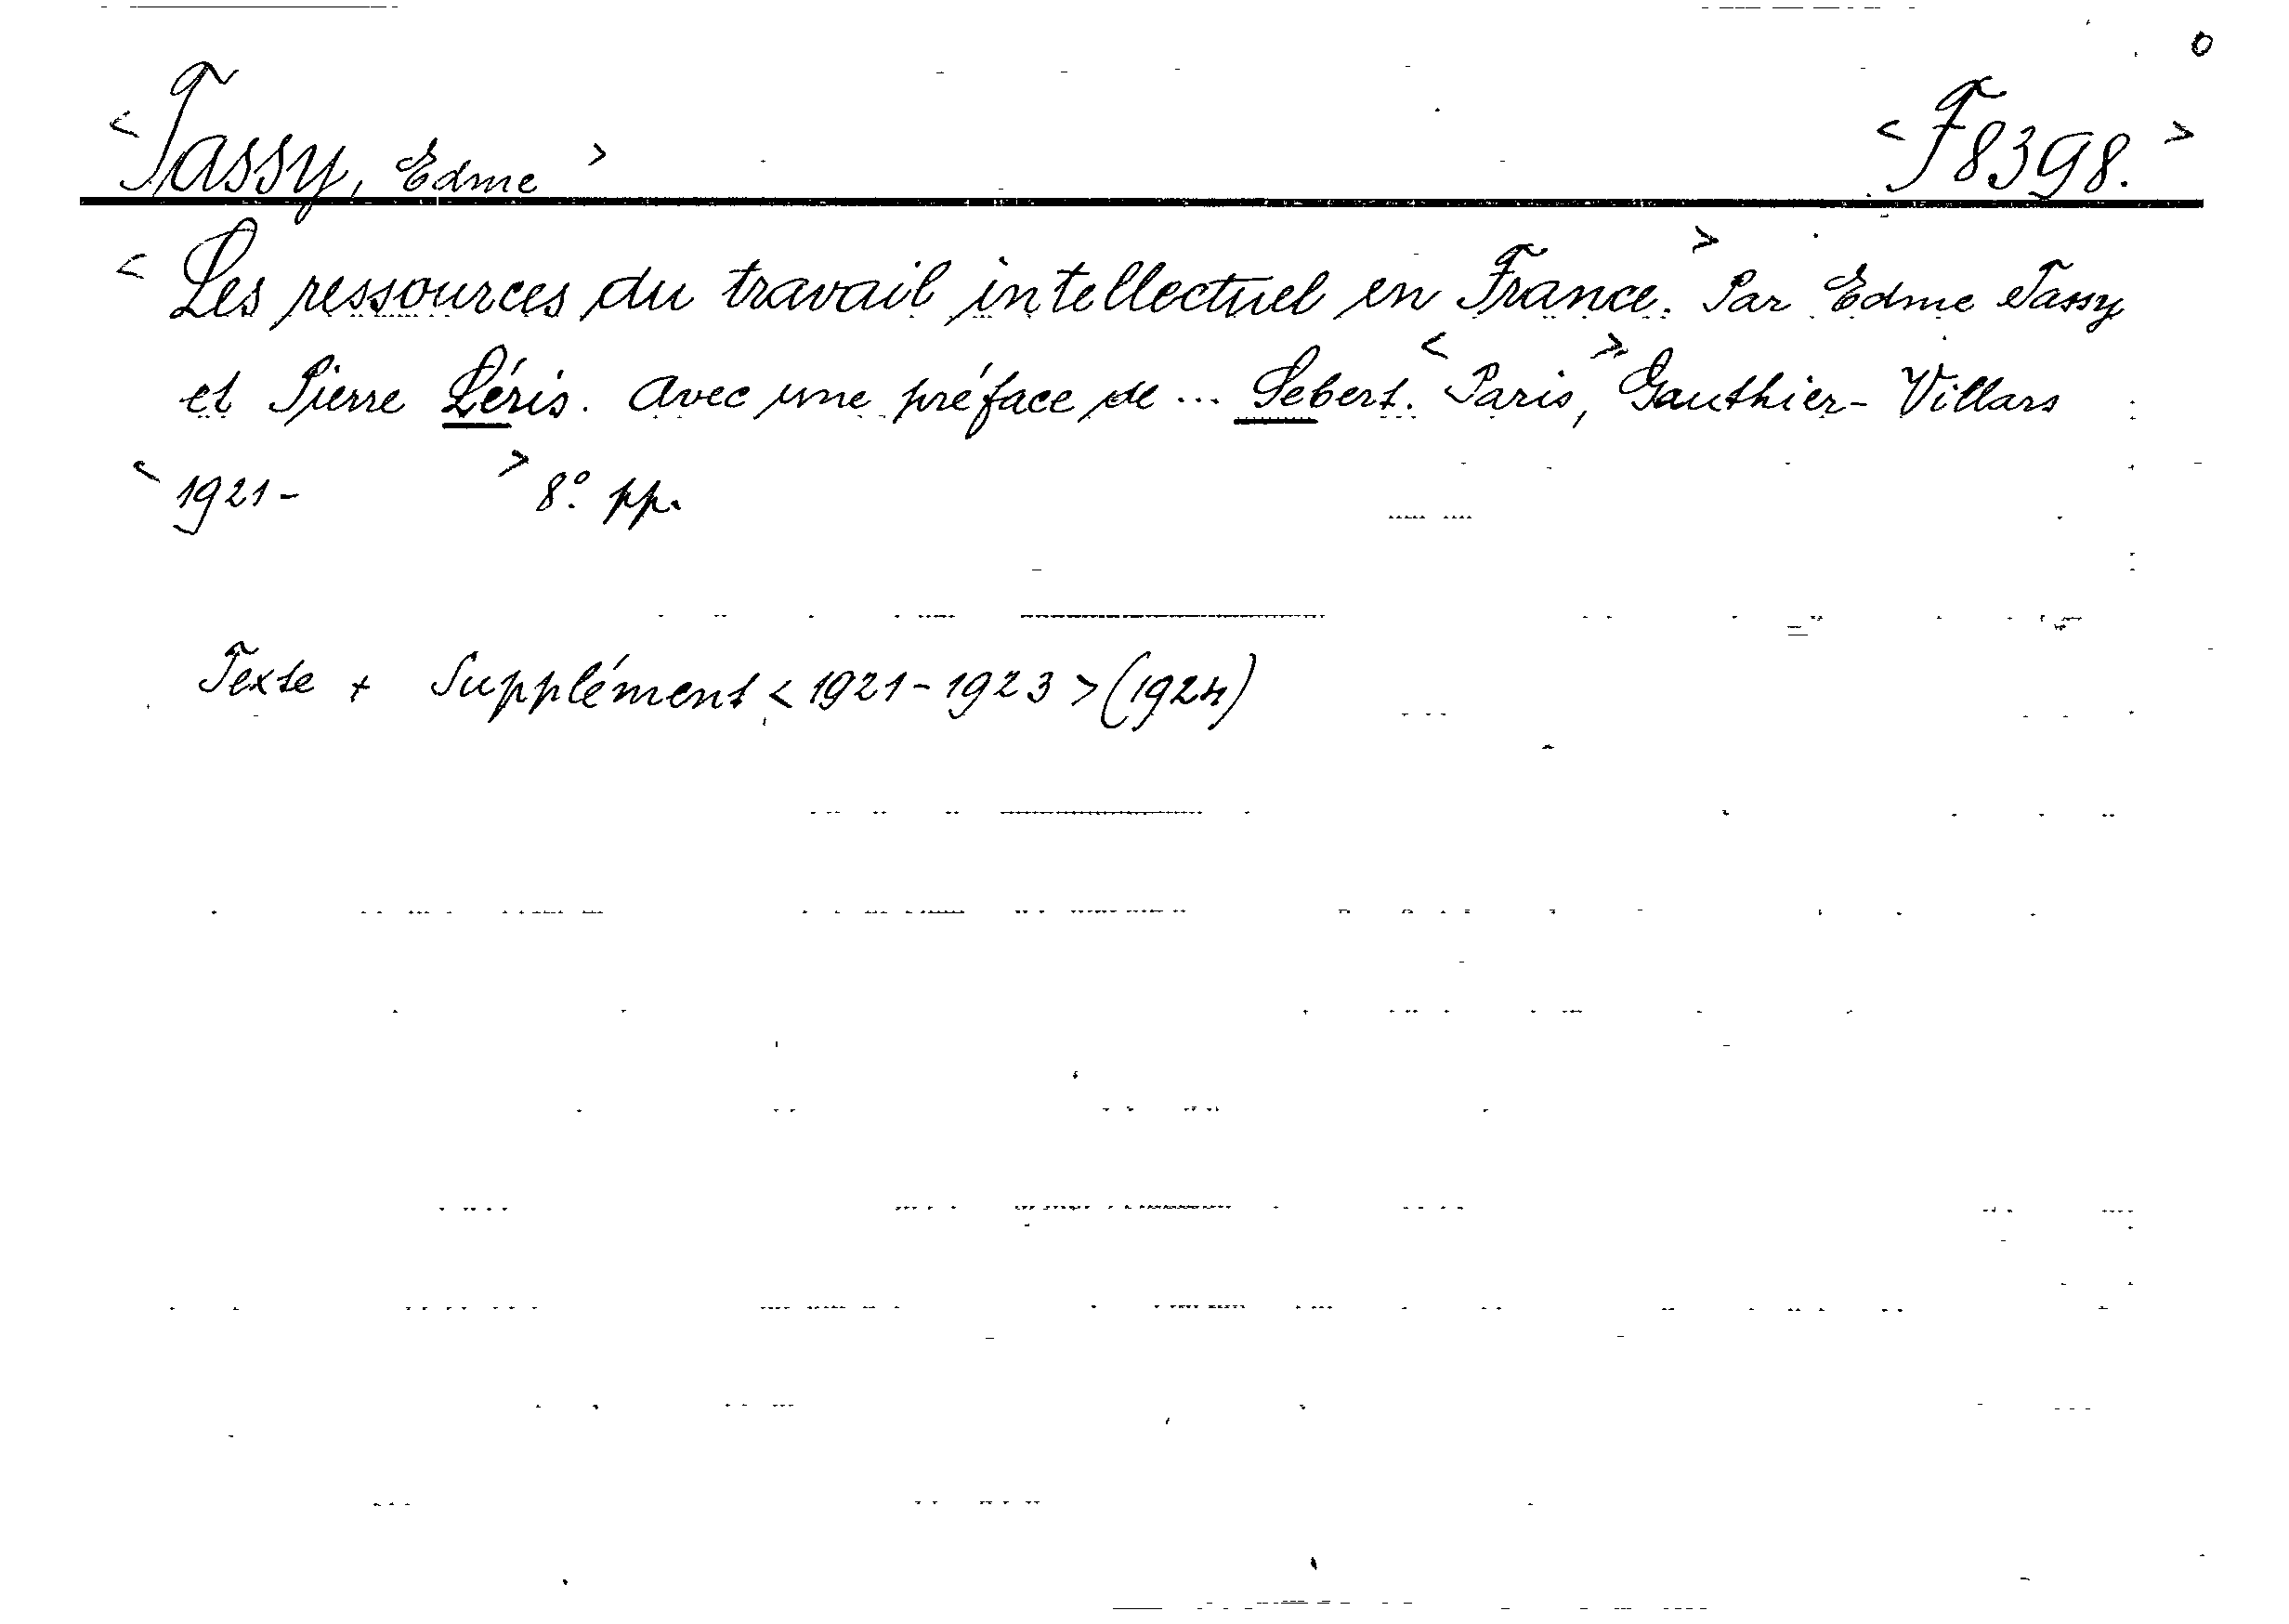 <Tassy, Edme> <F8398.>
<Les ressources du travail intellectuel en France.> Par Edme Tassy
et Pierre Léris. Avec une préface de ... Sebert. <Paris,> Gauthier-Villars
<1921- > 8° pp.
Texte + Supplément <1921-1923> (1924)